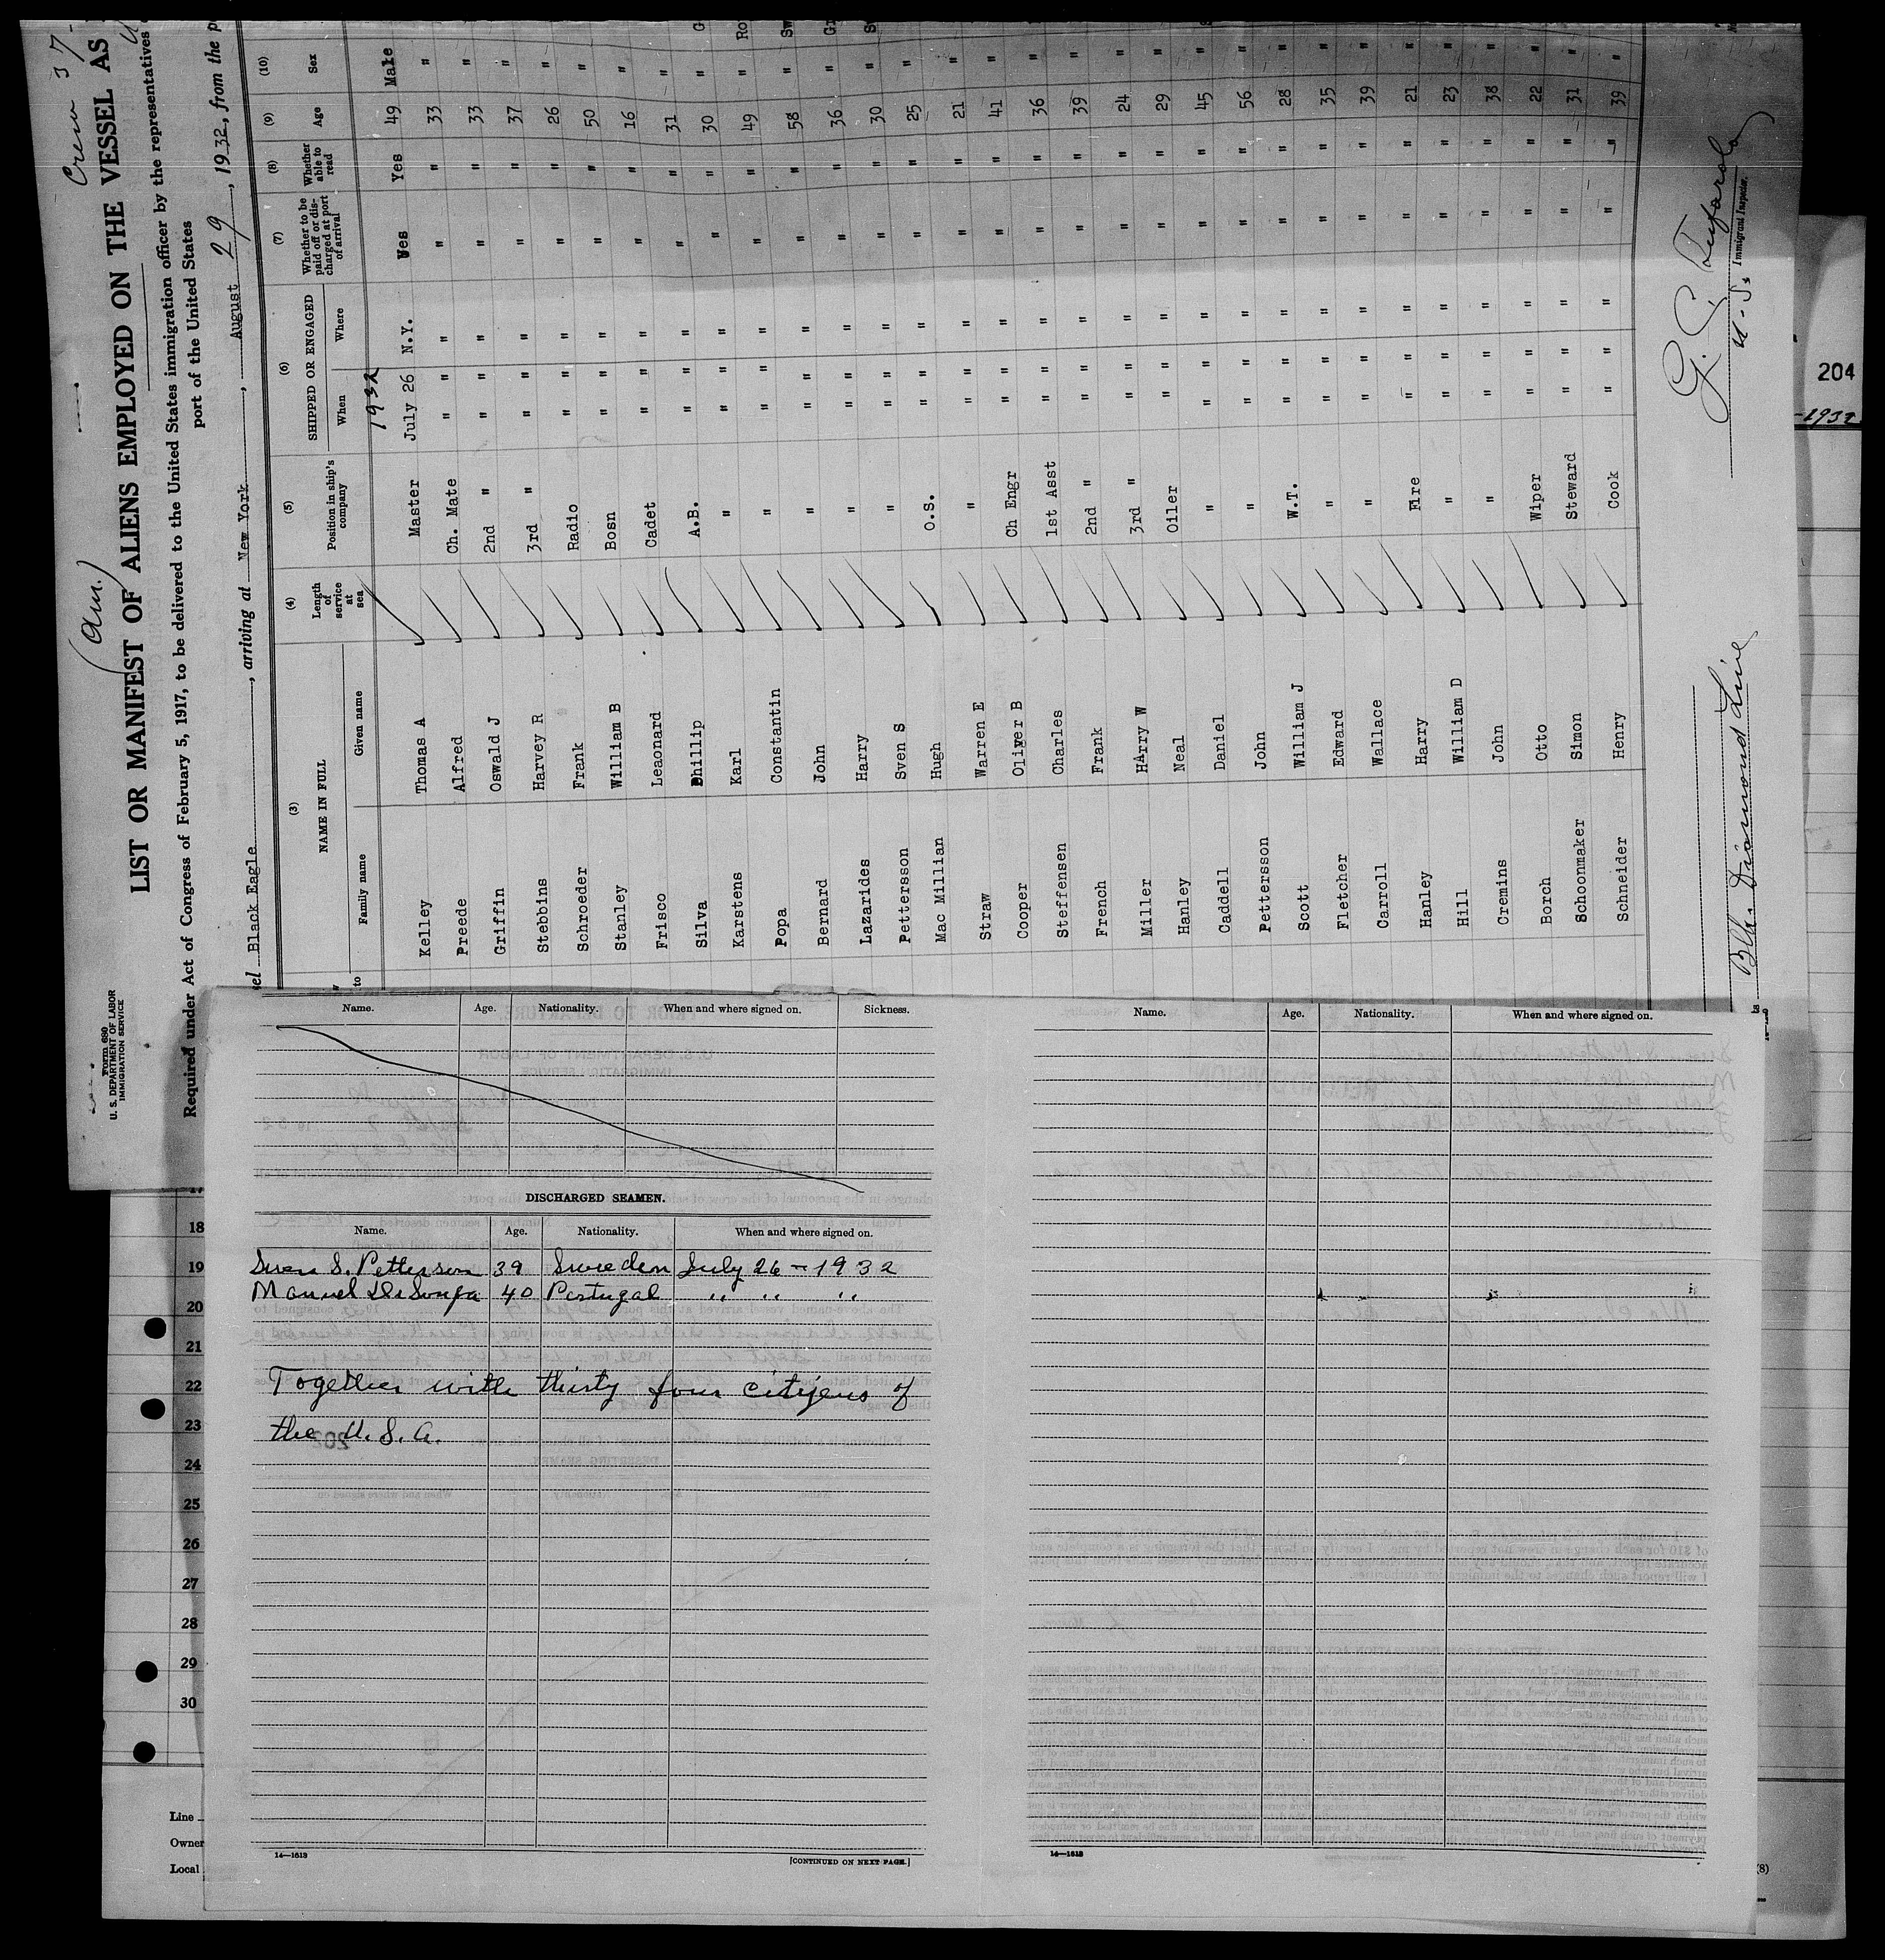 Crew 37
(Am.)
Form 680
U. S. DEPARTMENT OF LABOR
IMMIGRATION SERVICE
LIST OR MANIFEST OF ALIENS EMPLOYED ON THE VESSEL AS
Required under Act of Congress of February 5, 1917, to be delivered to the United States immigration officer by the representatives
port of the United States
Black Eagle, arriving at New York, August 29, 1932, from the p
(3) (4) (5) (6) (7) (8) (9) (10)
NAME IN FULL Length of service at sea Position in ship's company SHIPPED OR ENGAGED Whether to be paid off or discharged at port of arrival Whether able to read Age Sex
Family name Given name When Where
1932
Kelley Thomas A Master July 26 N.Y. Yes Yes 49 Male
Preede Alfred Ch. Mate " " " " " 33 "
Griffin Oswald J 2nd " " " " " " 33 "
Stebbins Harvey R 3rd " " " " " " 37 "
Schroeder Frank Radio " " " " " 26 "
Stanley William B Bosn " " " " " 50 "
Frisco Leaonard Cadet " " " " " 16 "
Silva Phillip A.B. " " " " " 31 "
Karstens Karl " " " " " " 30 "
Popa Constantin " " " " " " 49 "
Bernard John " " " " " " 58 "
Lazarides Harry " " " " " " 36 "
Pettersson Sven S " " " " " " 30 "
Mac Millian Hugh O.S. " " " " " 25 "
Straw Warren E " " " " " " 21 "
Cooper Oliver B Ch Engr " " " " " 41 "
Steffensen Charles 1st Asst " " " " " 36 "
French Frank 2nd " " " " " " 39 "
Miller HArry W 3rd " " " " " " 24 "
Hanley Neal Oiler " " " " " 29 "
Caddell Daniel " " " " " " 45 "
Pettersson John " " " " " " 56 "
Scott William J W.T. " " " " " 28 "
Fletcher Edward " " " " " " 35 "
Carroll Wallace " " " " " " 39 "
Hanley Harry Fire " " " " " 21 "
Hill William D " " " " " " 23 "
Cremins John " " " " " " 38 "
Borch Otto Wiper " " " " " 22 "
Schoonmaker Simon Steward " " " " " 31 "
Schneider Henry Cook " " " " " 39 "
Blk. Diamond Line
U.S. Immigrant Inspector.
204
-1932
Name. Age. Nationality. When and where signed on. Sickness.
DISCHARGED SEAMEN.
Name. Age. Nationality. When and where signed on.
Sven S. Petterson 39 Sweden July 26 - 1932
Manuel DeSouza 40 Portugal " " "
Together with thirty four citizens of
the U.S.A.
14—1613
[CONTINUED ON NEXT PAGE.]
Name. Age. Nationality. When and where signed on.
14—1613
17
18
19
20
21
22
23
24
25
26
27
28
29
30
Line
Owner
Local
(8)